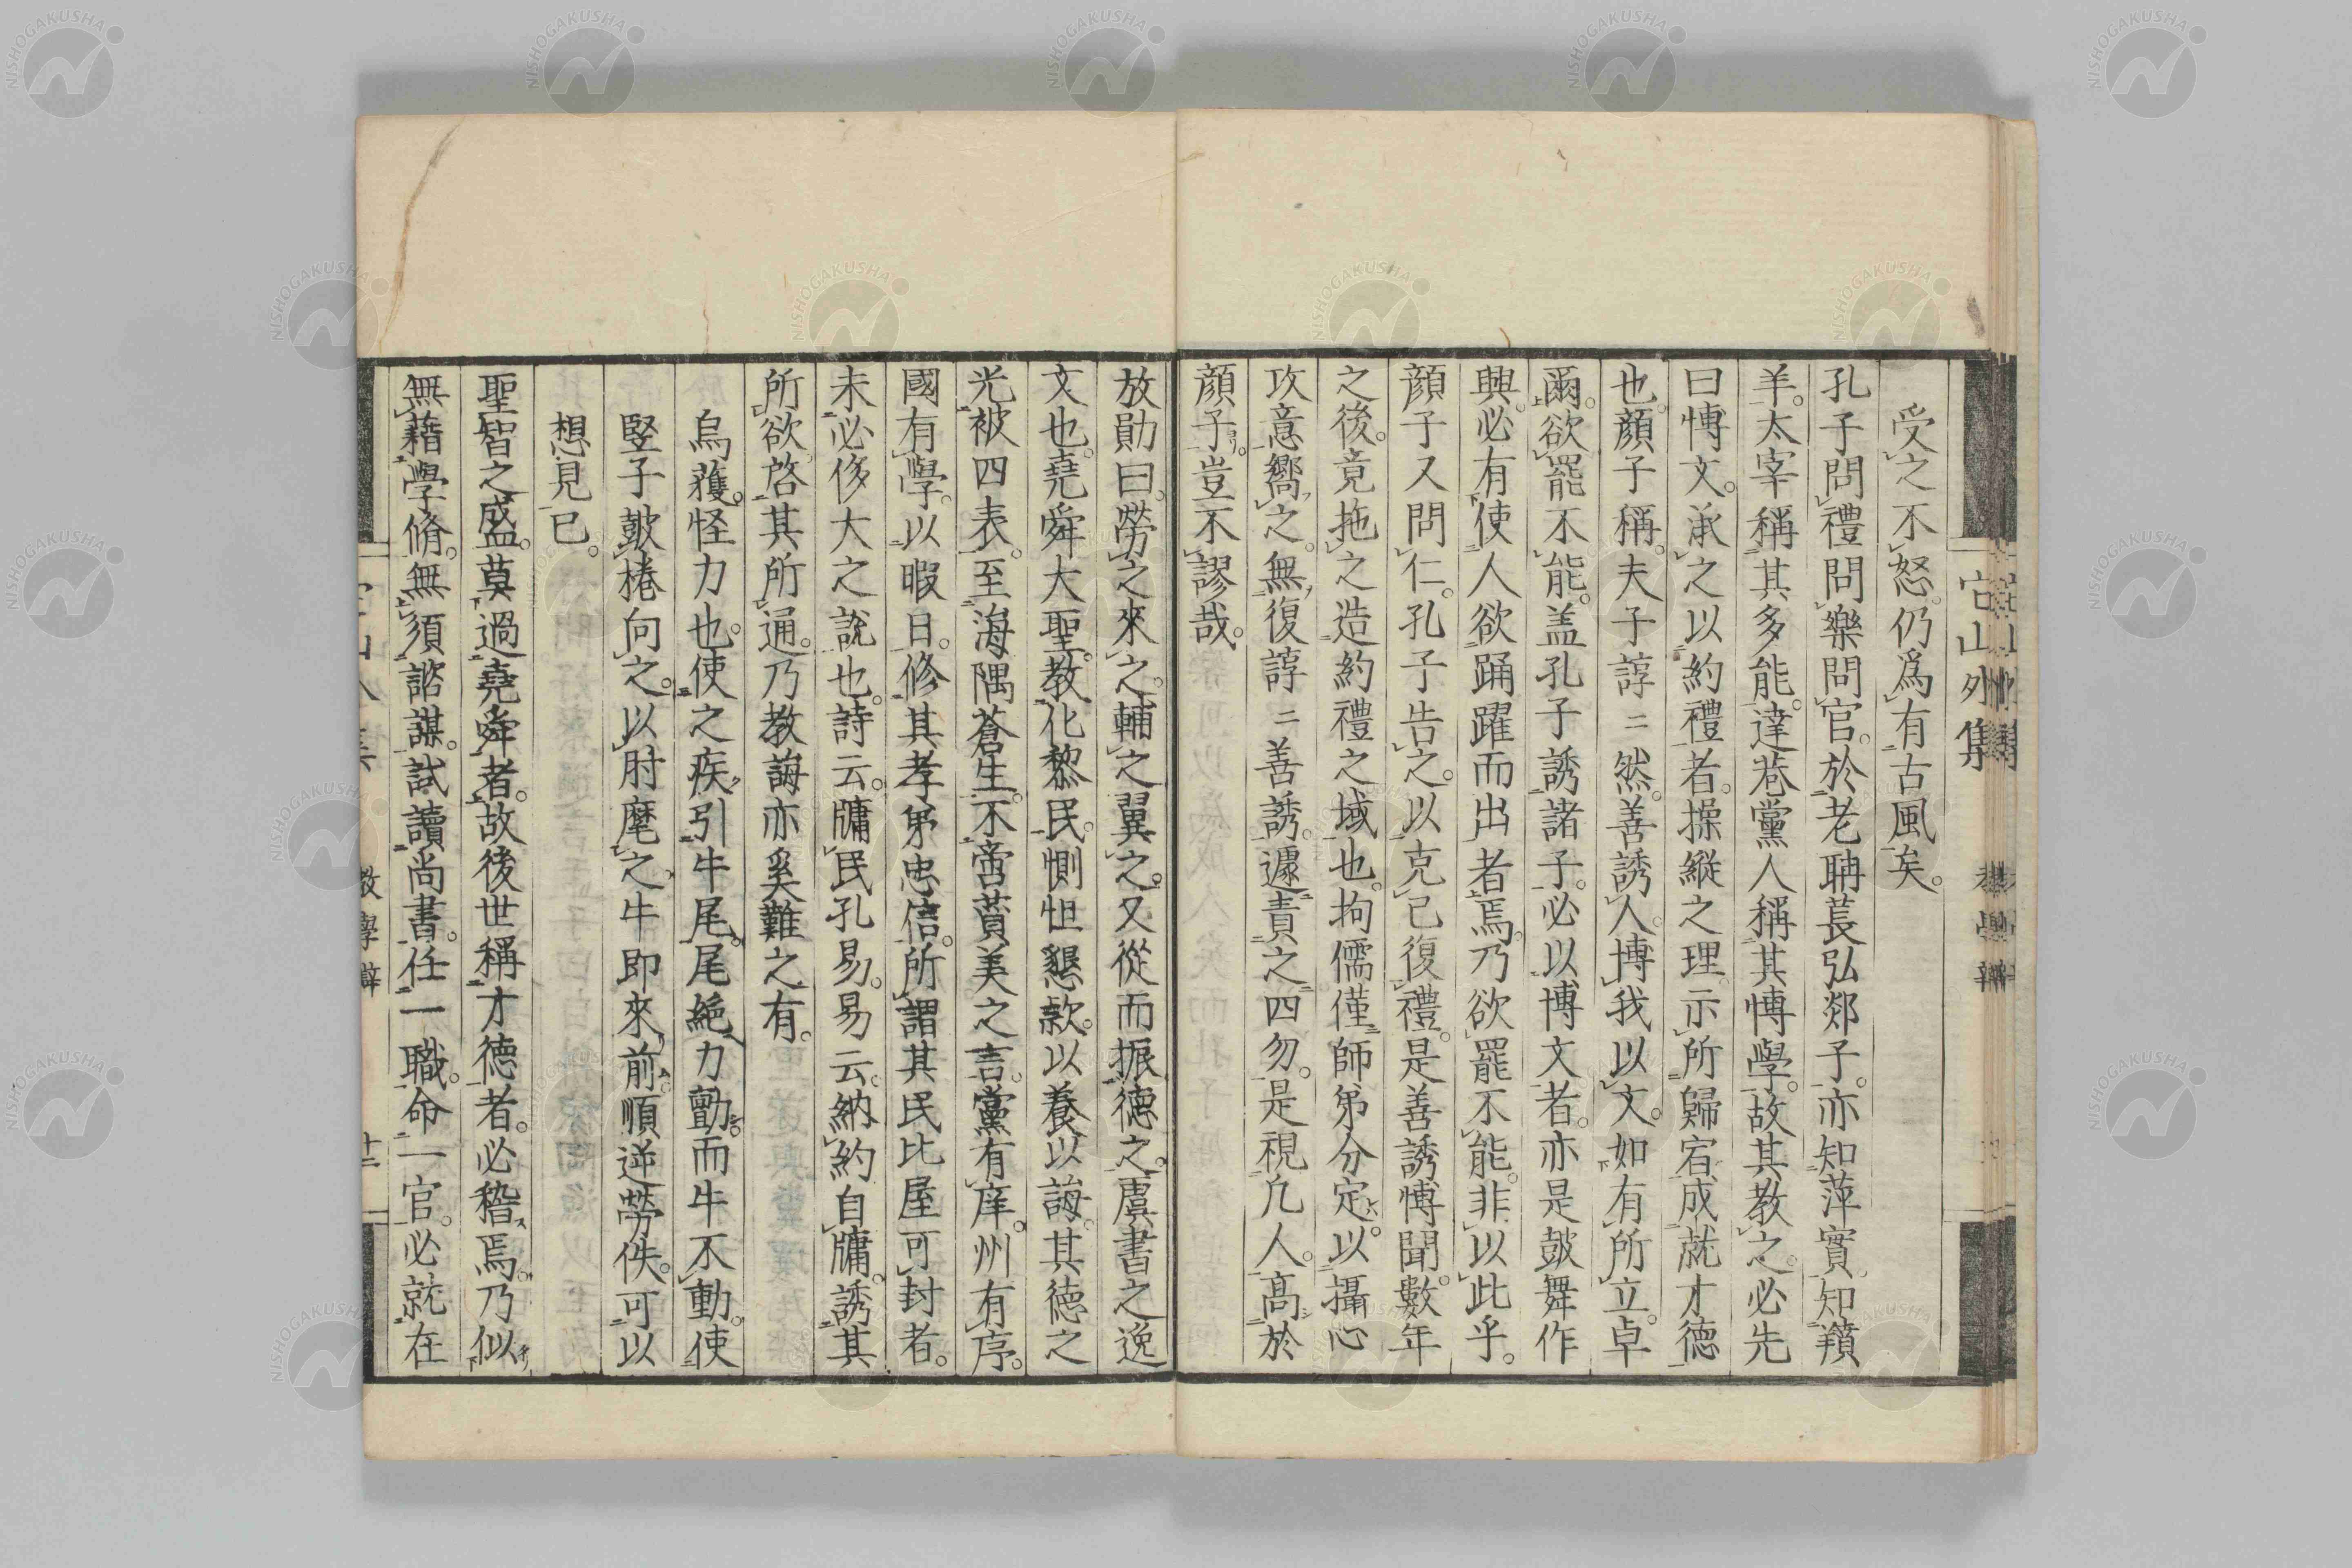 受之不怒。仍爲有古風矣。
孔子問禮問樂問官。於老聃萇弘郯子。亦知萍實。知羵
羊。太宰稱其多能。達巷黨人稱其博學。故其教之。必先
曰博文。承之以約禮者。操縱之理。示所歸宿。成就才德
也。顔子稱。夫子諄〻然。善誘人。博我以文。如有所立。卓
爾。欲罷不能。盖孔子誘諸子。必以博文者。亦是鼓舞作
興。必有使人欲踊躍而出者焉。乃欲罷不能。非以此乎。
顔子又問仁。孔子告之。以克己復禮。是善誘博聞。數年
之後。竟拖之造約禮之域也。拘儒僅師弟分定。以攝心
攻意嚮之。無復諄〻善誘。遽責之四勿。是視凡人。高於
顔子。豈不謬哉。
放勛曰。勞之來之。輔之翼之。又從而振德之。虞書之逸
文也。堯舜大聖。教化黎民。惻怛懇款。以養以誨。其德之
光被四表。至海隅蒼生。不啻蕢美之言。黨有庠。州有序。
國有學。以暇日。修其孝弟忠信。所謂其民比屋可封者。
未必侈大之說也。詩云。牖民孔易。易云。納約自牖。誘其
所欲。啓其所通。乃教誨亦奚難之有。
烏蒦。怪力也。使之疾引牛尾。尾絶力勯。而牛不動。使
竪子鼓棬向之。以肘麾之。牛即來前。順逆勞佚。可以
想見已。
聖智之盛。莫過堯舜者。故後世稱才德者。必稽焉。乃似
無藉學脩。無須諮謀。試讀尚書。任一職。命一官。必就在
宕山外集
教學辯
十二
NISHOGAKUSHA